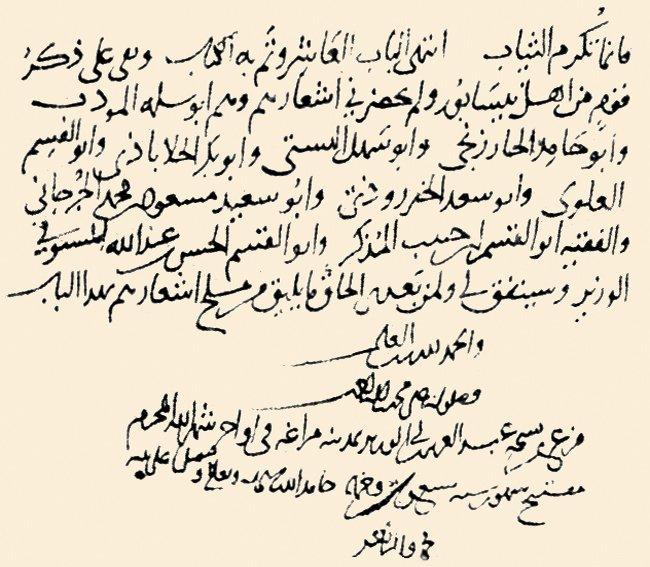 فانما نكرم الثياب انتهى الباب العاشر وتم به الكتاب وبقى على ذكر
قوم من اهل نيسابور ولم يحضرني اشعارهم ومنهم ابو سلمه المودب
وابو حامد الخارزنجي وابو سهل البستي وابو بكر الجلاباذي وابو القسم
العلوى وابو سعد الخبزروذي وابو سعيد مسعود بن محمد الجرجاني
والفقيه ابو القسم بن حبيب المذكر وابو القسم الحسن بن عبد الله المستوفي
الوزير وسيتفق لي ولمن بعدي الحاق ما يليق من ملح اشعارهم بهذا الباب
والحمد لله رب العلمين
وصلواته على محمد
فرغ من نسخه عبد العزيز بمدينه مراغه في اواخر شهر الله المحرم
حامدا لله